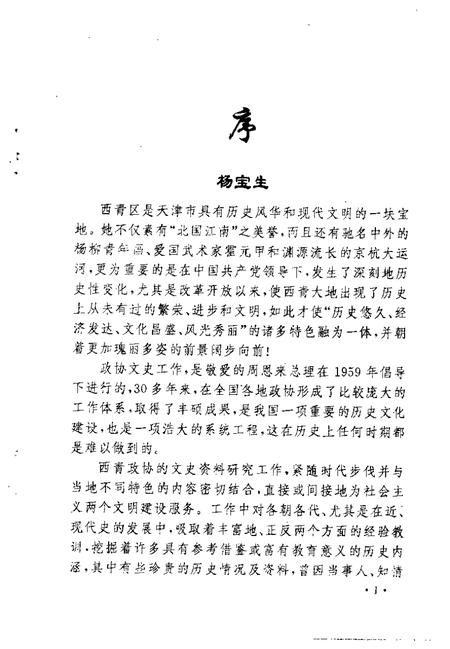 序
杨宝生
西青区是天津市具有历史风华和现代文明的一块宝
地。她不仅素有“北国江南”之美誉,而且还有驰名中外的
杨柳青年画、爱国武术家霍元甲和渊源流长的京杭大运
河,更为重要的是在中国共产党领导下,发生了深刻地历
史性变化,尤其是改革开放以来,使西青大地出现了历史
上从未有过的繁荣、进步和文明,如此才使“历史悠久、经
济发达、文化昌盛、风光秀丽”的诸多特色融为一体,并朝
着更加瑰丽多姿的前景阔步向前!
政协文史工作,是敬爱的周恩来总理在1959年倡导
下进行的,30多年来,在全国各地政协形成了比较庞大的
工作体系,取得了丰硕成果,是我国一项重要的历史文化
建设,也是一项浩大的系统工程,这在历史上任何时期都
是难以做到的。
西青政协的文史资料研究工作,紧随时代步伐并与
当地不同特色的内容密切结合,直接或间接地为社会主
义两个文明建设服务。工作中对各朝各代、尤其是在近、
现代史的发展中,吸取着丰富地、正反两个方面的经验教
训,挖掘着许多具有参考借鉴或富有教育意义的历史内
涵,其中有些珍贵的历史情况及资料,曾因当事人、知情
·1·